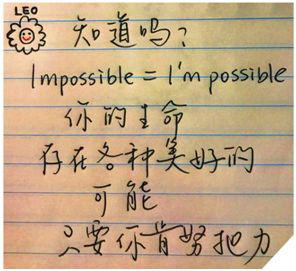 LEO
知道吗?
Impossible = I'm possible
你的生命
存在各种美好的
可能
只要你肯努把力